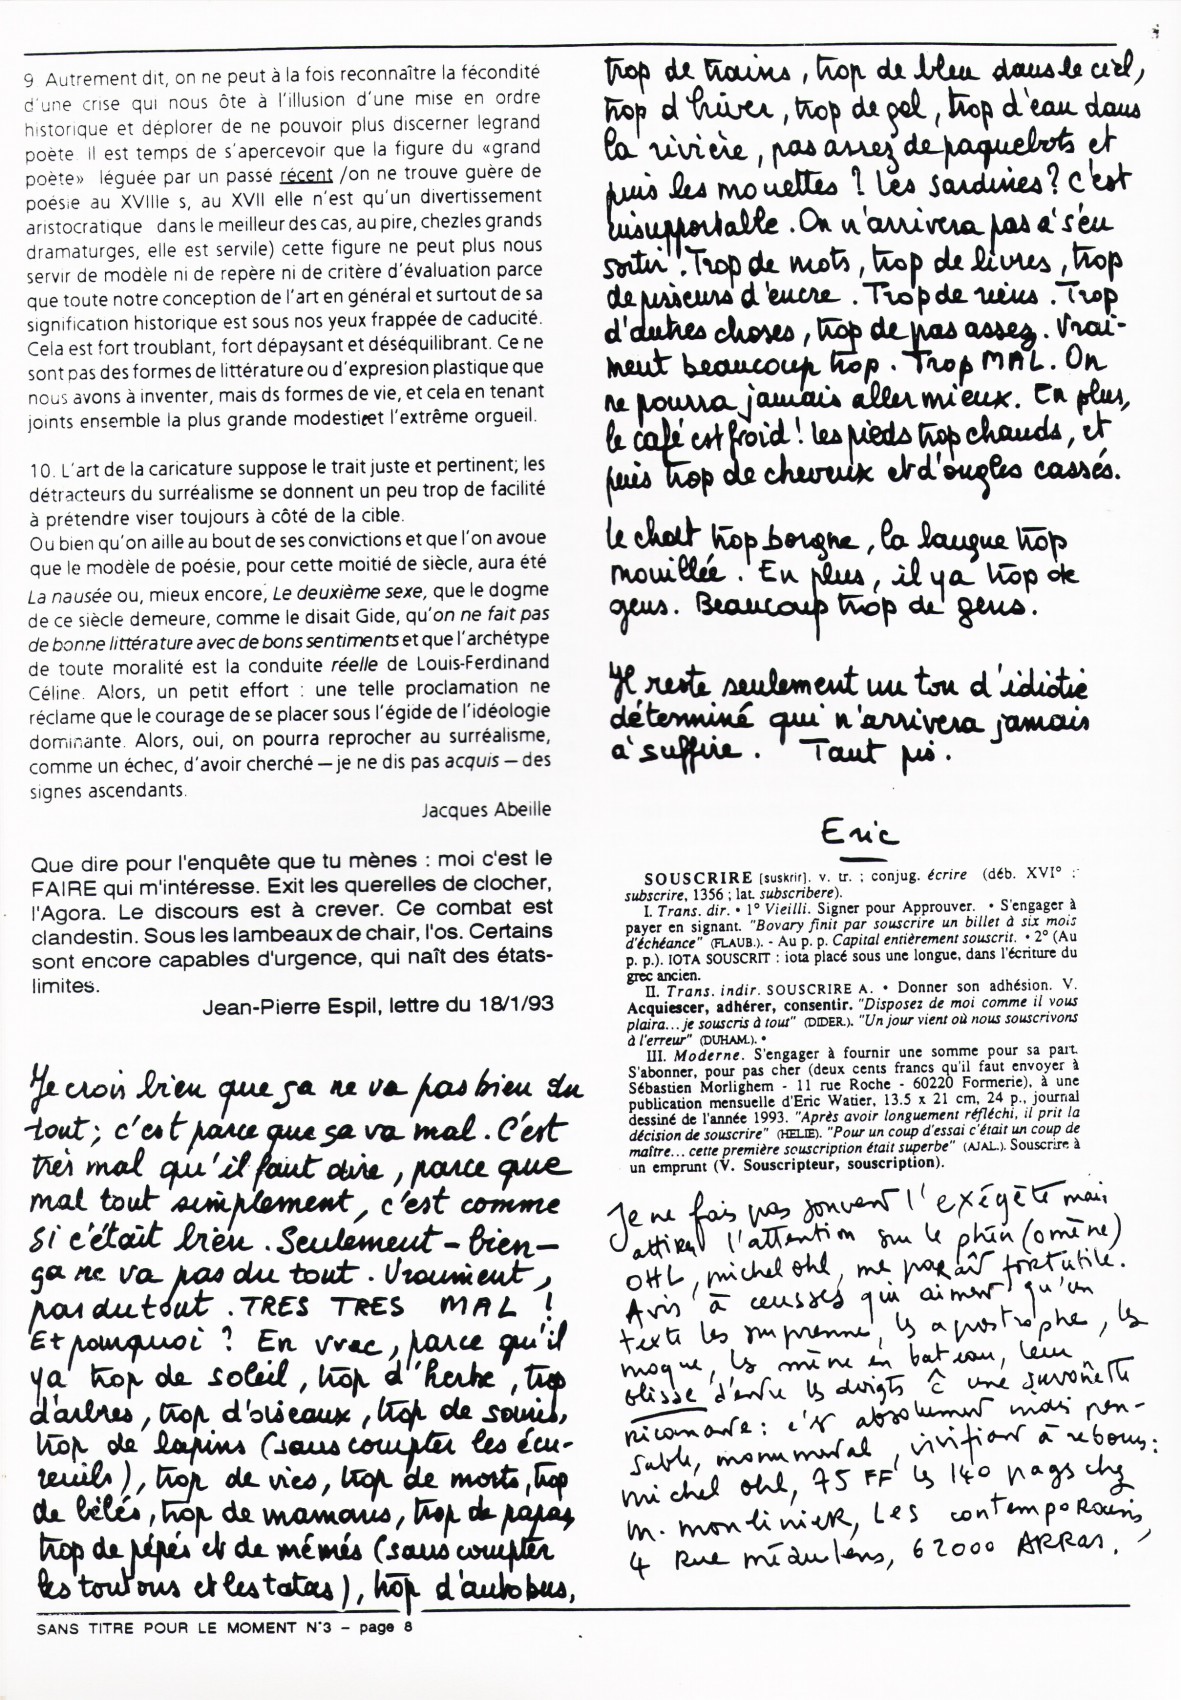 9 Autrement dit, on ne peut à la fois reconnaître la fécondité
d'une crise qui nous ôte à l'illusion d'une mise en ordre
historique et déplorer de ne pouvoir plus discerner legrand
poète. il est temps de s'apercevoir que la figure du «grand
poète» léguée par un passé récent /on ne trouve guère de
poésie au XVIIIe s, au XVII elle n'est qu'un divertissement
aristocratique dans le meilleur des cas, au pire, chezles grands
dramaturges, elle est servile) cette figure ne peut plus nous
servir de modèle ni de repère ni de critère d'évaluation parce
que toute notre conception de l'art en général et surtout de sa
signification historique est sous nos yeux frappée de caducité.
Cela est fort troublant, fort dépaysant et déséquilibrant. Ce ne
sont pas des formes de littérature ou d'expresion plastique que
nous avons à inventer, mais ds formes de vie, et cela en tenant
joints ensemble la plus grande modestieet l'extrême orgueil.
10. L'art de la caricature suppose le trait juste et pertinent; les
détracteurs du surréalisme se donnent un peu trop de facilité
à prétendre viser toujours à côté de la cible.
Ou bien qu'on aille au bout de ses convictions et que l'on avoue
que le modèle de poésie, pour cette moitié de siècle, aura été
La nausée ou, mieux encore, Le deuxième sexe, que le dogme
de ce siècle demeure, comme le disait Gide, qu'on ne fait pas
de bonne littérature avec de bons sentiments et que l'archétype
de toute moralité est la conduite réelle de Louis-Ferdinand
Céline. Alors, un petit effort : une telle proclamation ne
réclame que le courage de se placer sous l'égide de l'idéologie
dominante. Alors, oui, on pourra reprocher au surréalisme,
comme un échec, d'avoir cherché — je ne dis pas acquis — des
signes ascendants.
Jacques Abeille
Que dire pour l'enquête que tu mènes : moi c'est le
FAIRE qui m'intéresse. Exit les querelles de clocher,
l'Agora. Le discours est à crever. Ce combat est
clandestin. Sous les lambeaux de chair, l'os. Certains
sont encore capables d'urgence, qui naît des états-
limites.
Jean-Pierre Espil, lettre du 18/1/93
Je crois bien que ça ne va pas bien du
tout ; c'est parce que ça va mal. C'est
très mal qu'il faut dire, parce que
mal tout simplement, c'est comme
si c'était bien. Seulement - bien -
ça ne va pas du tout. Vraiment,
pas du tout. TRES TRES MAL !
Et pourquoi ? En vrac, parce qu'il
y a trop de soleil, trop d'herbe, trop
d'arbres, trop d'oiseaux, trop de souris,
trop de lapins (sans compter les écu-
reuils), trop de vies, trop de morts, trop
de bébés, trop de mamans, trop de papas,
trop de pépés et de mémés (sans compter
les tontons et les tatas), trop d'autobus,
trop de trains, trop de bleu dans le ciel,
trop d'hiver, trop de gel, trop d'eau dans
la rivière, pas assez de paquebots et
puis les mouettes ? Les sardines ? C'est
insupportable. On n'arrivera pas à s'en
sortir. Trop de mots, trop de livres, trop
de pisseurs d'encre. Trop de riens. Trop
d'autres choses, trop de pas assez. Vrai-
ment beaucoup trop. Trop MAL. On
ne pourra jamais aller mieux. En plus,
le café est froid ! les pieds trop chauds, et
puis trop de cheveux et d'ongles cassés.
Le chat trop borgne, la langue trop
mouillée. En plus, il y a trop de
gens. Beaucoup trop de gens.
Il reste seulement un ton d'idiotie
déterminé qui n'arrivera jamais
à suffire. Tant pis.
Eric
SOUSCRIRE [suskrir]. v. tr. ; conjug. écrire (déb. XVI° :
subscrire, 1356 ; lat. subscribere).
I. Trans. dir. • 1° Vieilli. Signer pour Approuver. • S'engager à
payer en signant. "Bovary finit par souscrire un billet à six mois
d'échéance" (FLAUB.). - Au p. p. Capital entièrement souscrit. • 2° (Au
p. p.). IOTA SOUSCRIT : iota placé sous une longue, dans l'écriture du
grec ancien.
II. Trans. indir. SOUSCRIRE A. • Donner son adhésion. V.
Acquiescer, adhérer, consentir. "Disposez de moi comme il vous
plaira... je souscris à tout" (DIDER.). "Un jour vient où nous souscrivons
à l'erreur" (DUHAM.). •
III. Moderne. S'engager à fournir une somme pour sa part.
S'abonner, pour pas cher (deux cents francs qu'il faut envoyer à
Sébastien Morlighem - 11 rue Roche - 60220 Formerie), à une
publication mensuelle d'Eric Watier, 13.5 x 21 cm, 24 p., journal
dessiné de l'année 1993. "Après avoir longuement réfléchi, il prit la
décision de souscrire" (HELIE). "Pour un coup d'essai c'était un coup de
maître... cette première souscription était superbe" (AJAL.). Souscrire à
un emprunt (V. Souscripteur, souscription).
Je ne fais pas souvent l'exégète mais
attirer l'attention sur le phén(omène)
OHL, michel ohl, me paraît fort utile.
Avis à ceusses qui aiment qu'un
texte les surprenne, les apostrophe, les
moque, les mène en bateau, leur
glisse d'entre les doigts ĉ une savonnette
ricanante : c'est absolument indispen-
sable, monumental, vivifiant à rebours :
michel ohl, 75 FF les 140 pages chez
M. Moulinier, Les contemporains,
4 Rue méaulens, 62000 ARRAS.
SANS TITRE POUR LE MOMENT N°3 – page 8